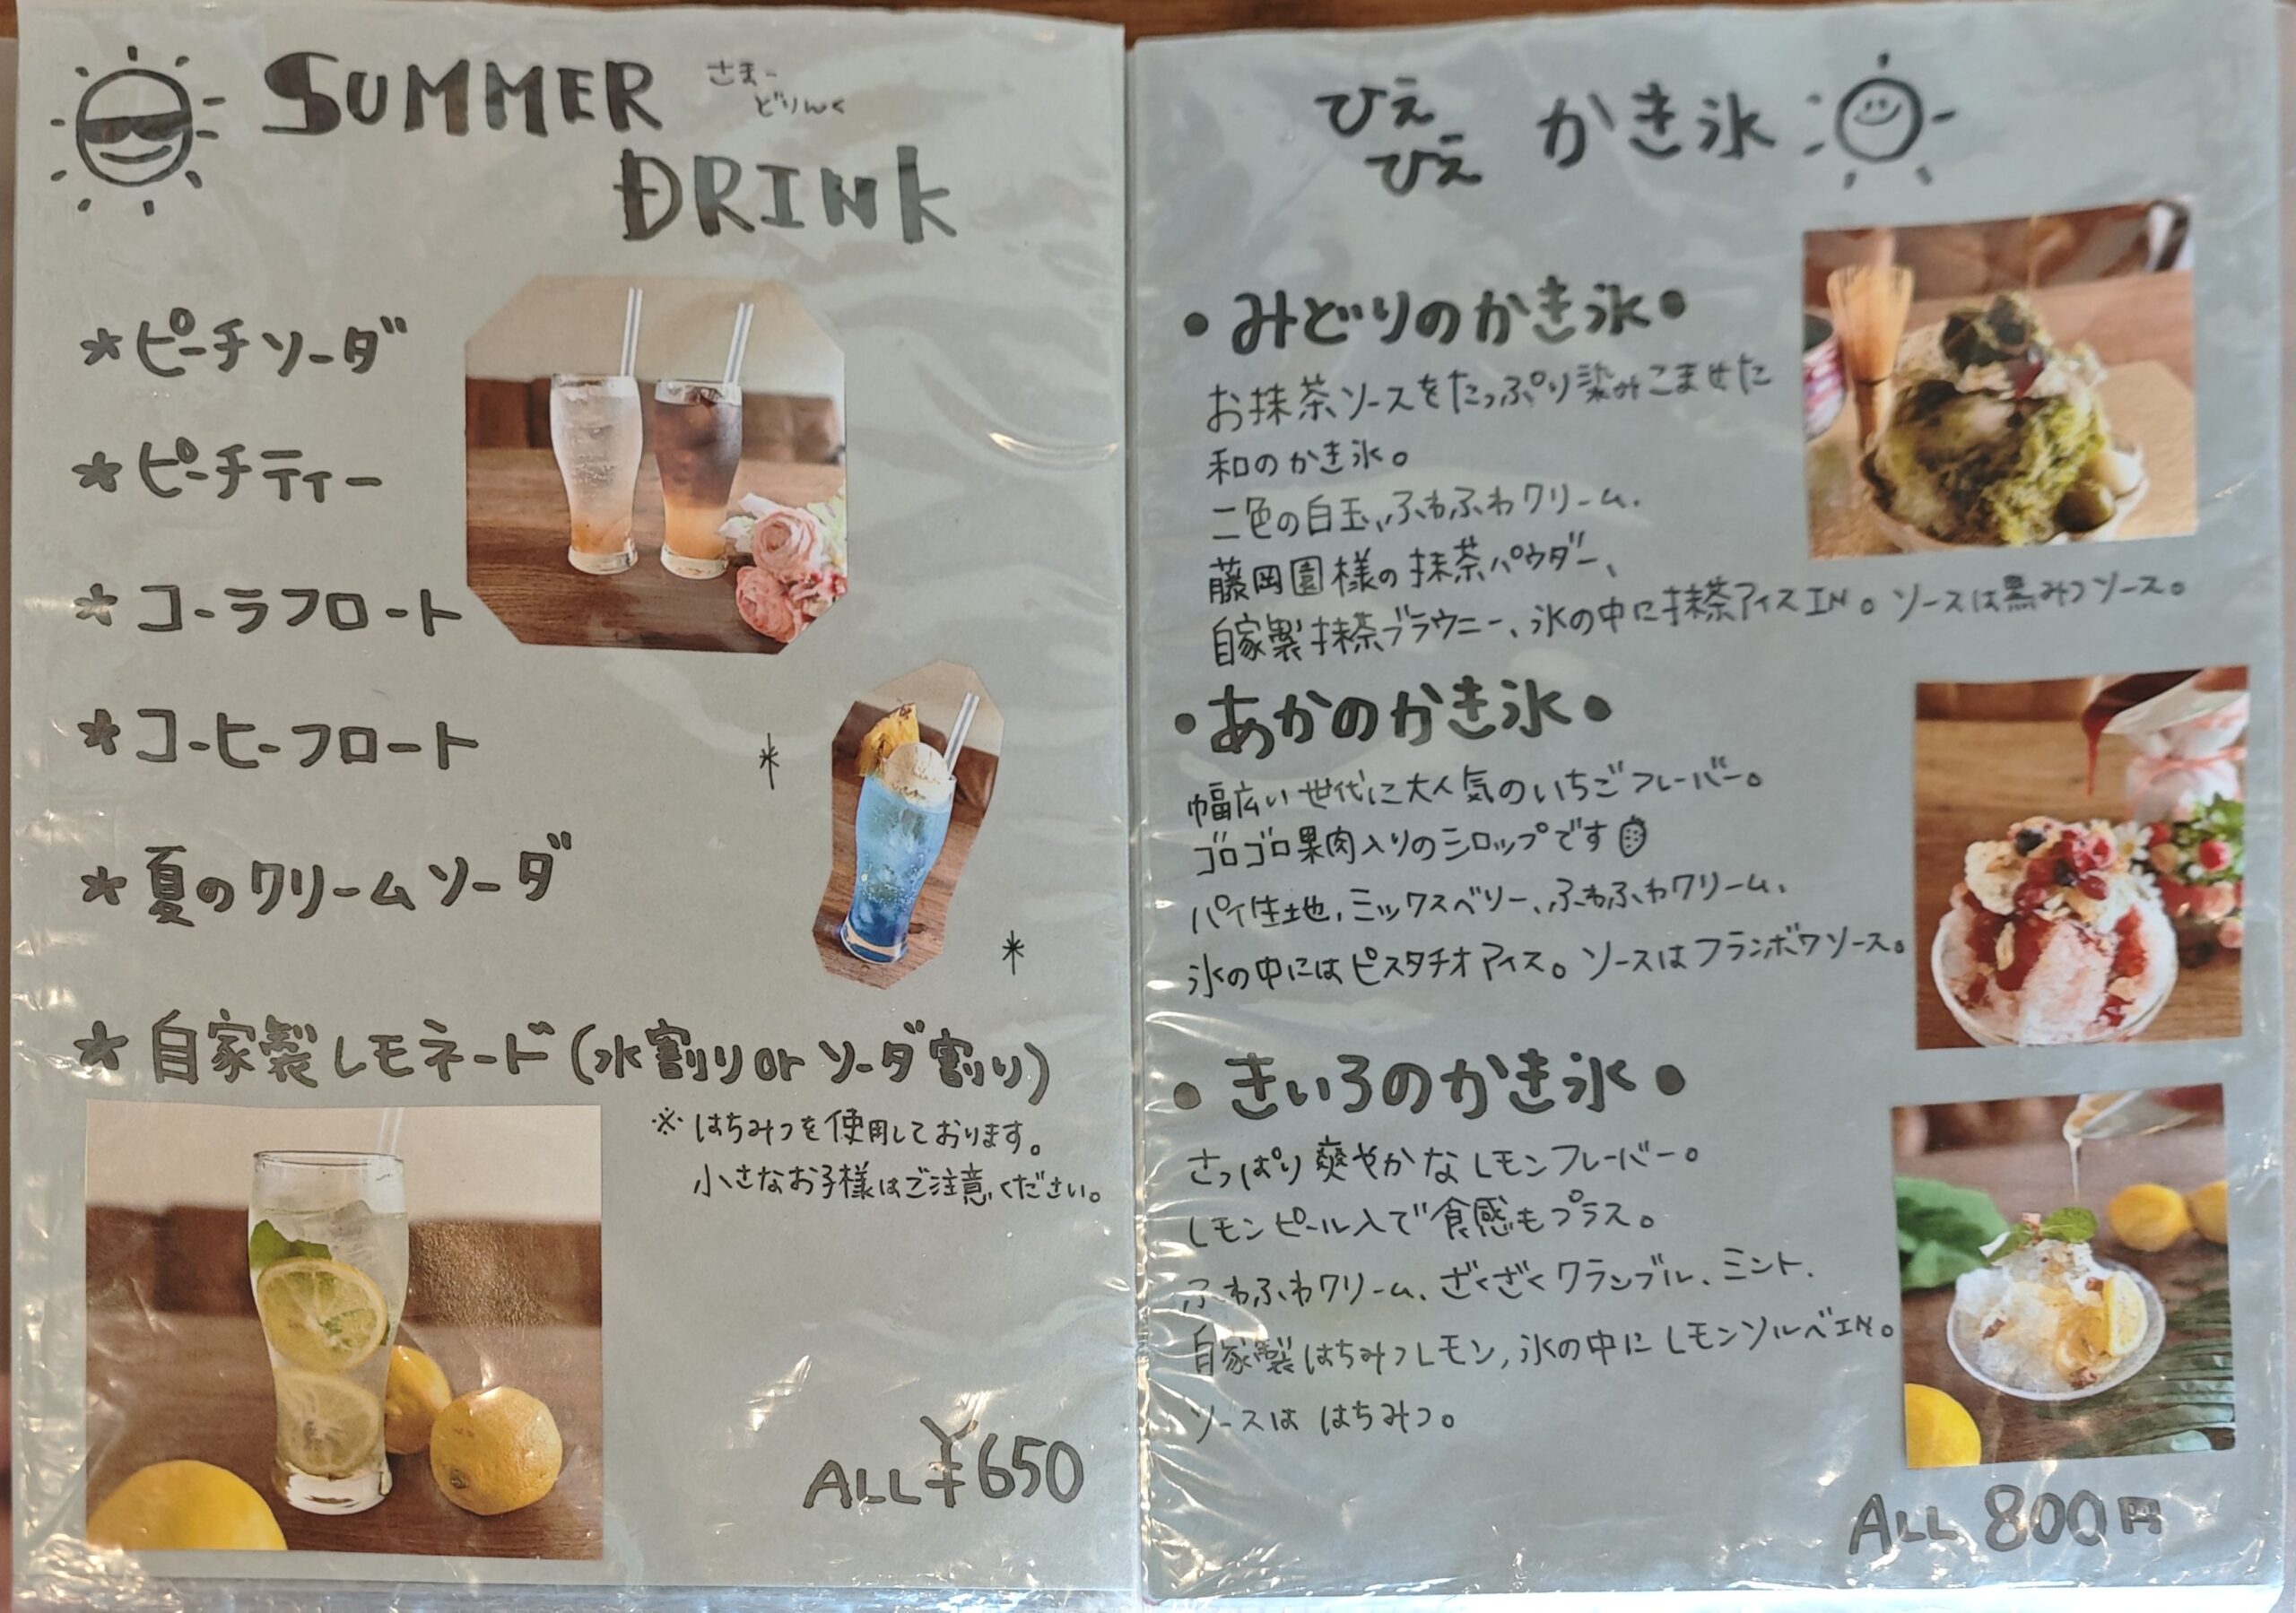 SUMMER
さまー
どりんく
DRINK
*ピーチソーダ
*ピーチティー
*コーラフロート
*コーヒーフロート
*夏のクリームソーダ
*自家製レモネード(水割りorソーダ割り)
※はちみつを使用しております。
小さなお子様はご注意ください。
ALL ¥650
ひえ
ひえ
かき氷
・みどりのかき氷・
お抹茶ソースをたっぷり染みこませた
和のかき氷。
二色の白玉、ふわふわクリーム、
藤岡園様の抹茶パウダー、
自家製抹茶ブラウニー、氷の中に抹茶アイスIN。ソースは黒みつソース。
・あかのかき氷・
幅広い世代に大人気のいちごフレーバー。
ゴロゴロ果肉入りのシロップです
パイ生地、ミックスベリー、ふわふわクリーム、
氷の中にはピスタチオアイス。ソースはフランボワソース。
・きいろのかき氷・
さっぱり爽やかなレモンフレーバー。
レモンピール入で食感もプラス。
ふわふわクリーム、ざくざくクランブル、ミント、
自家製はちみつレモン、氷の中にレモンソルベIN。
ソースは はちみつ。
ALL 800円